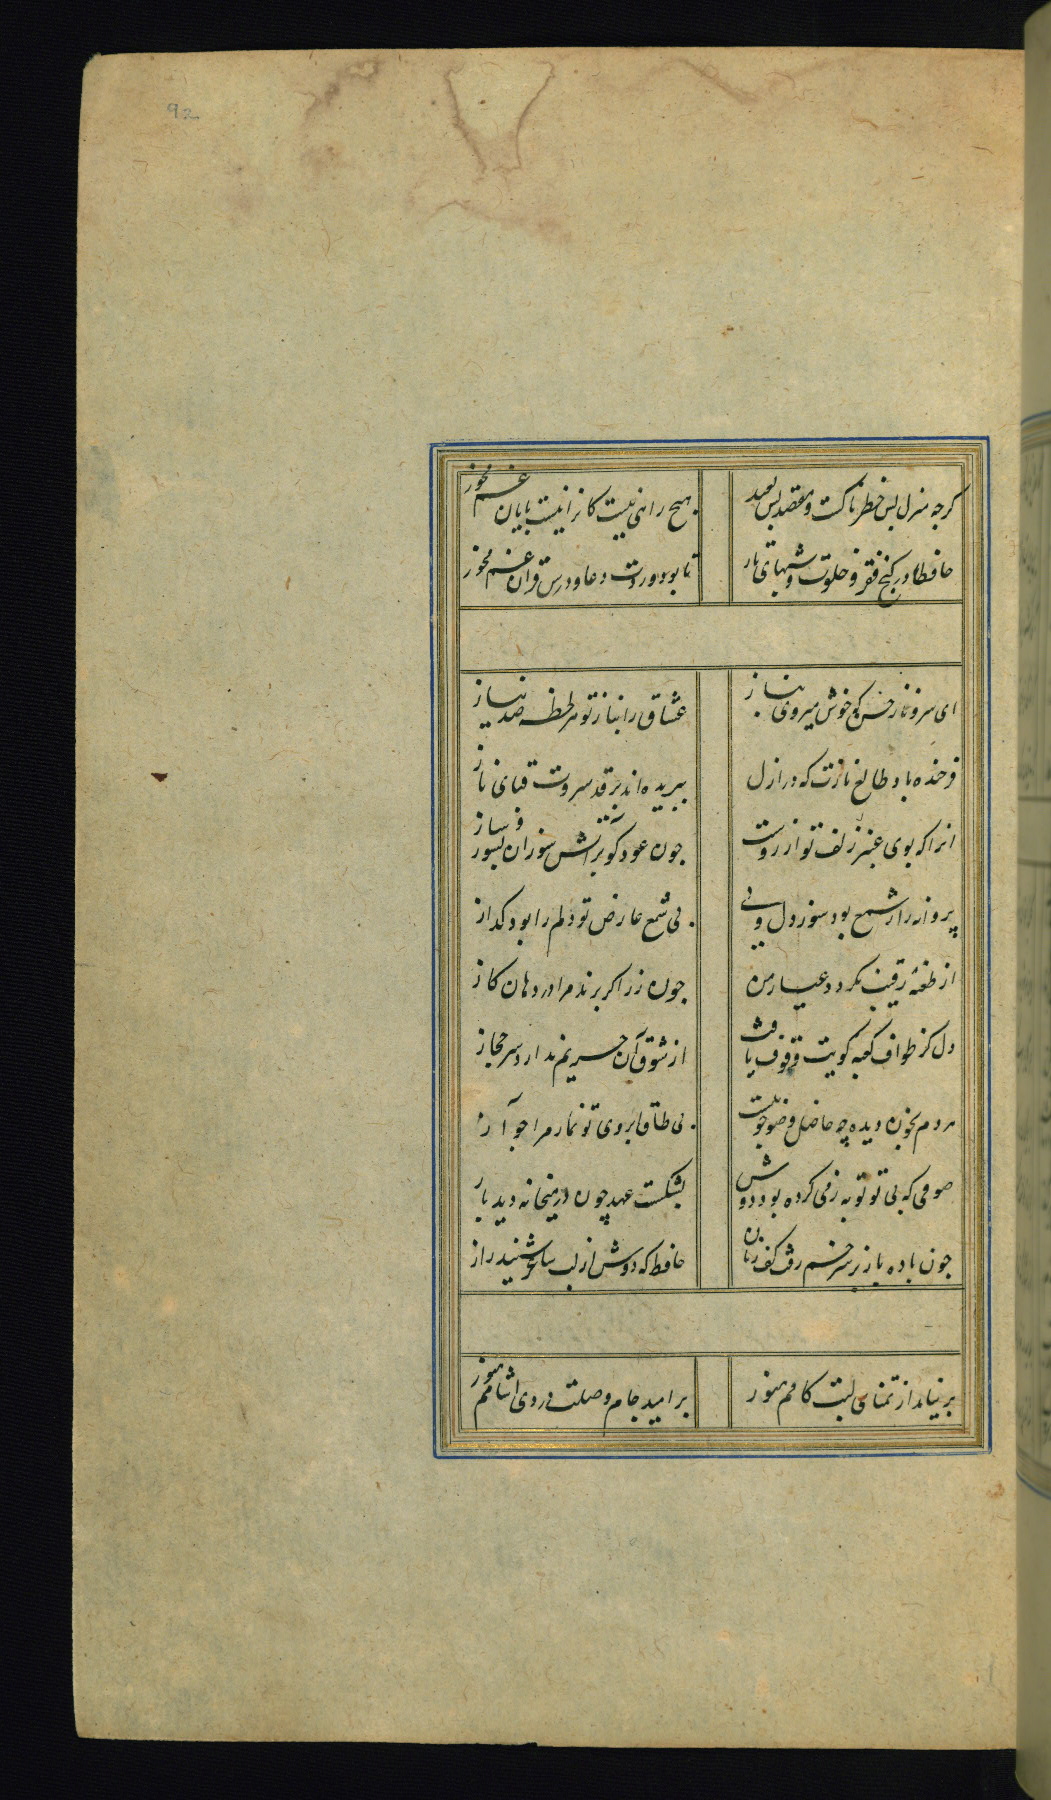 92
کرچه منزل بس خطرناکست و مقصد بس بعید
هیچ راهی نیست کانرا نیست پایان غم مخور
حافظا در کنج فقر و خلوت شبهای تار
تا بود وردت دعا و درس قران غم مخور
ای سرو ناز حسن که خوش میروی بناز
عشاق را بناز تو هر لحظه صد نیاز
فرخنده باد طالع نازت که در ازل
ببریده اند بر قد سروت قبای ناز
انرا که بوی عنبر زلف تو آرزوست
چون عود کو بر آتش سوزان بسوز و ساز
پروانه را ز شمع بود سوز دل ولی
بی شمع عارض تو دلم را بود کداز
از طعنهٔ رقیب نکردد عیار من
چون زر اکر برند مرا در دهان کاز
دل کز طواف کعبه کویت وقوف یافت
از شوق آن حریم ندارد سر حجاز
هر دم بخون دیده چه حاصل وضو چو نیست
بی طاق ابروی تو نماز مرا جواز
صوفی که بی تو توبه ز می کرده بود دوش
بشکست عهد چون در میخانه دید باز
چون باده باز بر سر خم رفت کف زنان
حافظ که دوش از لب ساغر شنید راز
بر نیامد از تمنای لبت کامم هنوز
بر امید جام وصلت دردی اشامم هنوز